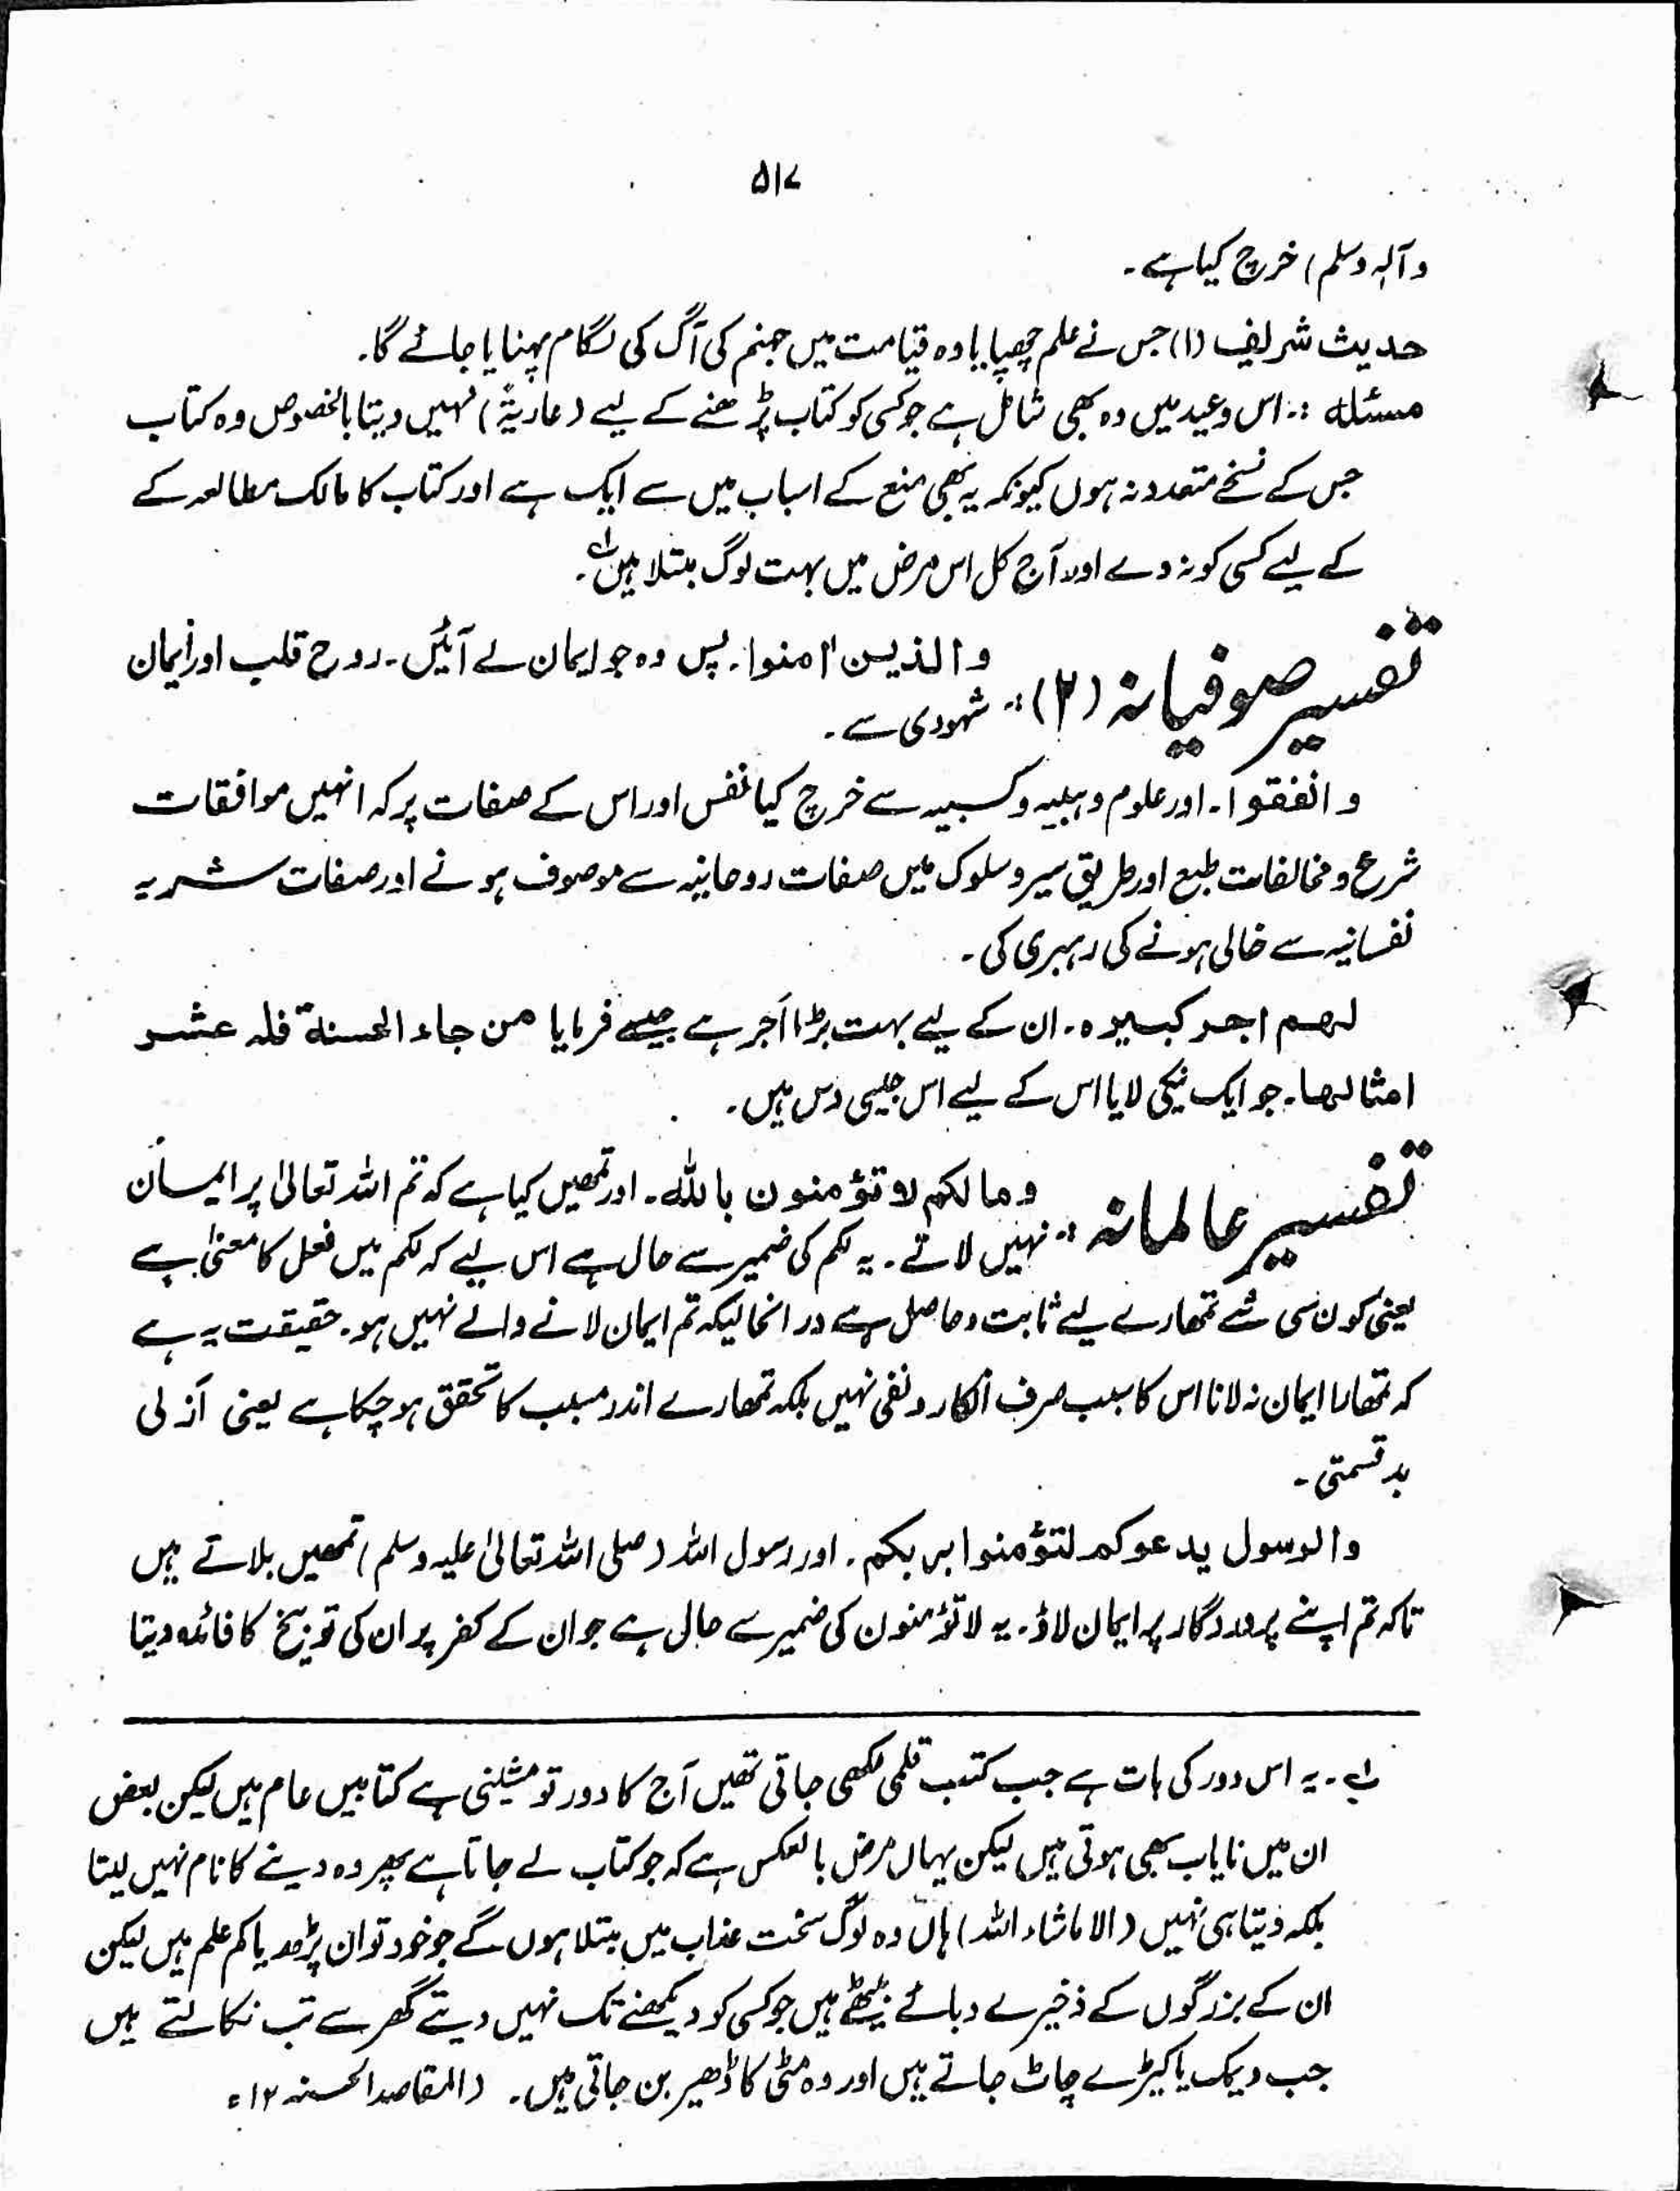 ۵۱۷
وآلہٖ وسلم) خرچ کیا ہے۔
حدیث شریف (۱) جس نے علم چھپایا وہ قیامت میں جہنم کی آگ کی لگام پہنایا جائے گا۔
مسئلہ :۔ اس وعید میں وہ بھی شامل ہے جو کسی کو کتاب پڑھنے کے لیے (عاریۃً) نہیں دیتا بالخصوص وہ کتاب
جس کے نسخے متعدد نہ ہوں کیونکہ یہ بھی منع کے اسباب میں سے ایک ہے اور کتاب کا مالک مطالعہ کے
کے لیے کسی کو نہ دے اور آج کل اس مرض میں بہت لوگ مبتلا ہیں۱؎۔
تفسیر صوفیانہ (۲) :۔ والذین اٰمنوا۔ پس وہ جو ایمان لے آئیں۔ روح قلب اور ایمان
شہودی سے۔
وانفقوا۔ اور علوم وہبیہ و کسبیہ سے خرچ کیا نفس اور اس کے صفات پر کہ انہیں موافقات
شرع و مخالفات طبع اور طریق سیر و سلوک میں صفات روحانیہ سے موصوف ہونے اور صفات شریہ
نفسانیہ سے خالی ہونے کی رہبری کی۔
لہم اجر کبیر ہ۔ ان کے لیے بہت بڑا اَجر ہے جیسے فرمایا من جاء الحسنۃ فلہ عشر
امثالہا۔ جو ایک نیکی لایا اس کے لیے اس جیسی دس ہیں۔
تفسیر عالمانہ :۔ ومالکم لا تؤمنون باللہ۔ اور تمھیں کیا ہے کہ تم اللہ تعالیٰ پر ایمان
نہیں لاتے۔ یہ لکم کی ضمیر سے حال ہے اس لیے کہ لکم میں فعل کا معنیٰ ہے
یعنی کون سی شے تمھارے لیے ثابت و حاصل ہے درانحالیکہ تم ایمان لانے والے نہیں ہو۔ حقیقت یہ ہے
کہ تمھارا ایمان نہ لانا اس کا سبب صرف انکار و نفی نہیں بلکہ تمھارے اندر مسبب کا تحقق ہو چکا ہے یعنی اَزلی
بدقسمتی۔
والرسول یدعوکم لتؤمنوا بربکم۔ اور رسول اللہ (صلی اللہ تعالیٰ علیہ وسلم) تمھیں بلاتے ہیں
تاکہ تم اپنے پروردگار پر ایمان لاؤ۔ یہ لا تؤمنون کی ضمیر سے حال ہے جو ان کے کفر پر ان کی توبیخ کا فائدہ دیتا
۱؎۔ یہ اس دور کی بات ہے جب کتب قلمی لکھی جاتی تھیں آج کا دور تو مشینی ہے کتابیں عام ہیں لیکن بعض
ان میں نایاب بھی ہوتی ہیں لیکن یہاں مرض بالعکس ہے کہ جو کتاب لے جاتا ہے پھر وہ دینے کا نام نہیں لیتا
بلکہ دیتا ہی نہیں (الا ماشاء اللہ) ہاں وہ لوگ سخت عذاب میں مبتلا ہوں گے جو خود تو ان پڑھ یا کم علم ہیں لیکن
ان کے بزرگوں کے ذخیرے دبائے بیٹھے ہیں جو کسی کو دیکھنے تک نہیں دیتے گھر سے تب نکالتے ہیں
جب دیمک یا کیڑے چاٹ جاتے ہیں اور وہ مٹی کا ڈھیر بن جاتی ہیں۔ (المقاصد الحسنہ ۱۲ء